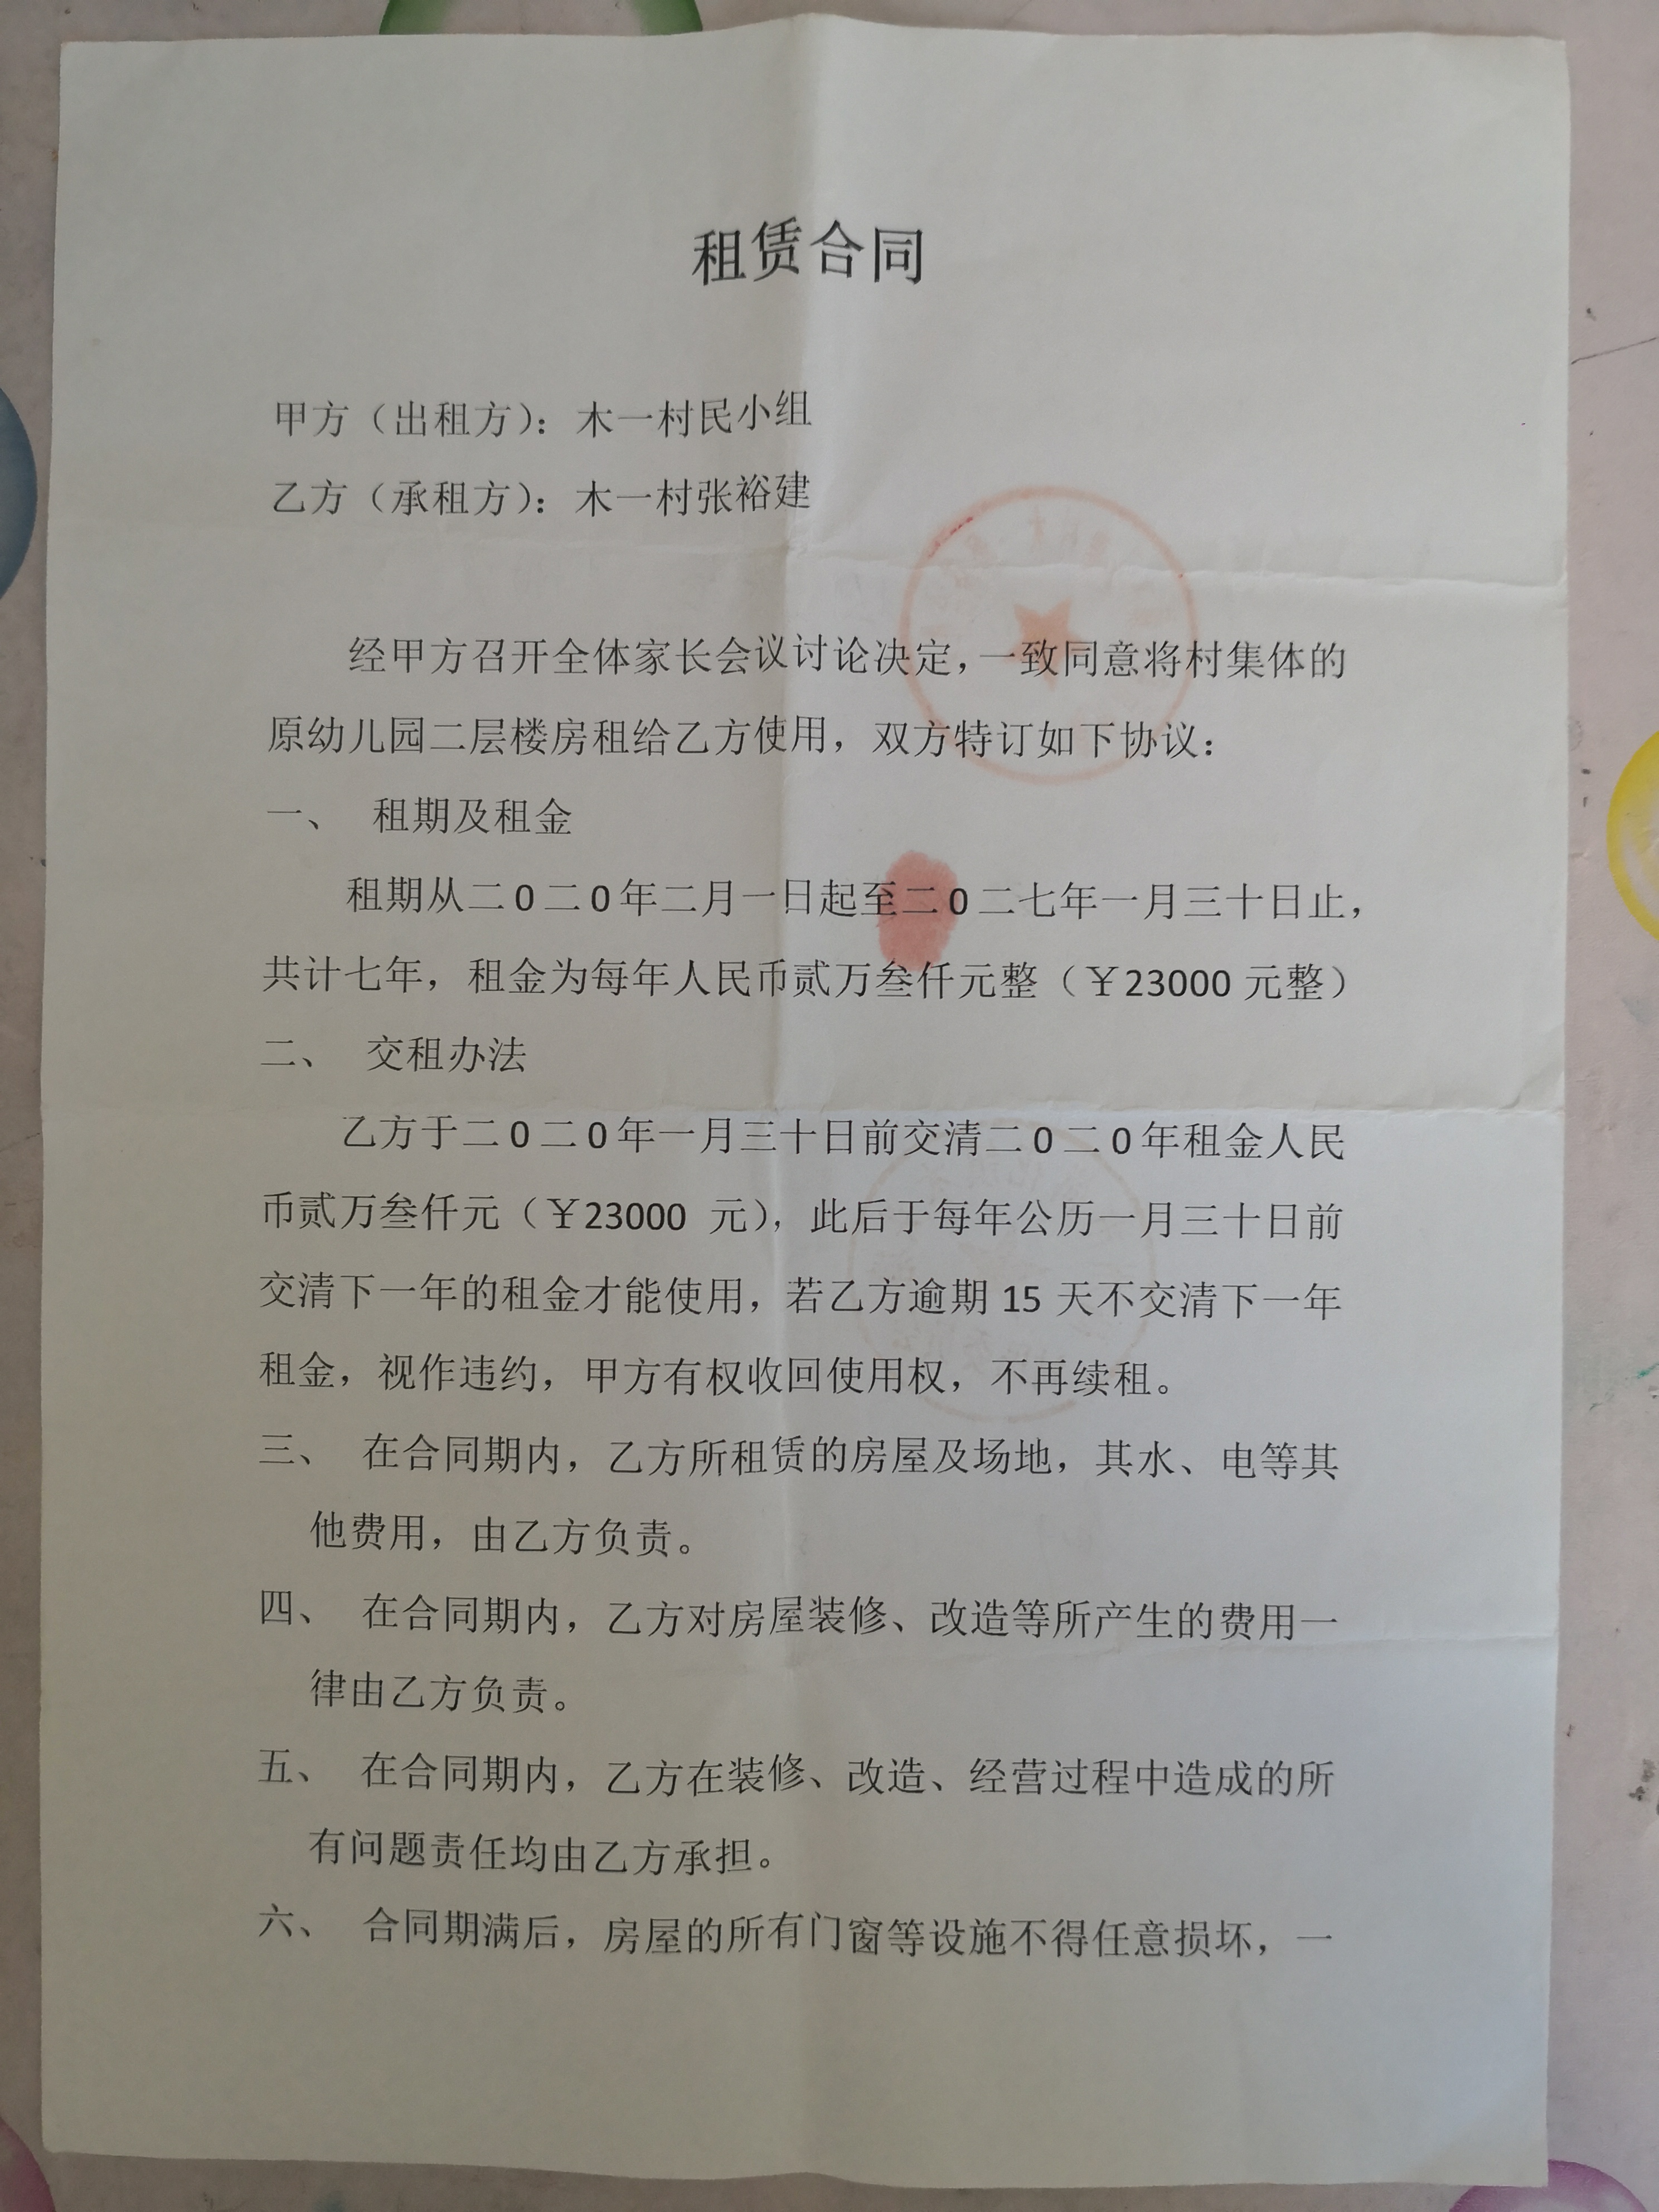 租赁合同
甲方（出租方）：木一村民小组
乙方（承租方）：木一村张裕建
经甲方召开全体家长会议讨论决定，一致同意将村集体的
原幼儿园二层楼房租给乙方使用，双方特订如下协议：
一、 租期及租金
租期从二0二0年二月一日起至二0二七年一月三十日止，
共计七年，租金为每年人民币贰万叁仟元整（￥23000 元整）
二、 交租办法
乙方于二0二0年一月三十日前交清二0二0年租金人民
币贰万叁仟元（￥23000 元），此后于每年公历一月三十日前
交清下一年的租金才能使用，若乙方逾期 15 天不交清下一年
租金，视作违约，甲方有权收回使用权，不再续租。
三、 在合同期内，乙方所租赁的房屋及场地，其水、电等其
他费用，由乙方负责。
四、 在合同期内，乙方对房屋装修、改造等所产生的费用一
律由乙方负责。
五、 在合同期内，乙方在装修、改造、经营过程中造成的所
有问题责任均由乙方承担。
六、 合同期满后，房屋的所有门窗等设施不得任意损坏，一